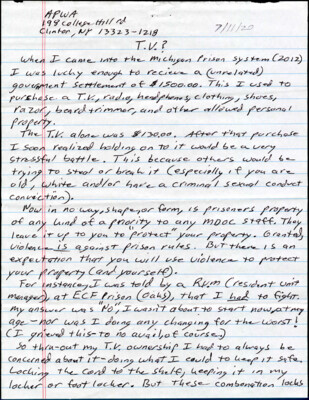 APWA
198 College Hill rd
Clinton, NY 13323-1218
7/11/20
T.V.?
When I came into the Michigan Prison system (2012)
I was luchy enough to recieve a (unrelated)
goverment settlement of $1500.00. This I used to
purchase a T.V., radio, headphones, clothing, shoes,
razor, beard trimmer, and other allowed personal
property.
The T.V. alone was $130.00. After that purchase
I soon realized holding on to it would be a very
stressful battle. This because others would be
trying to steal or break it (especially if you are
old, white and/or have a criminal sexual conduct
conviction).
Now in no way, shape, or form, is prisoners property
of any kind of a priority to any MDOC staff. They
leave it up to you to "protect" your property. Granted,
violence is against prison rules. But there is an
expectation that you will use violence to protect
your property (and yourself).
For instance, I was told by a R.U.M (resident unit
manager), at ECF Prison (Oaks), that I had to fight.
My answer was "No", I wasn't about to start now, at my
age - nor was I doing any changing for the worst!
(I grieved this - to no avail of course.)
So thru-out my T.V. ownership I had to always be
concerned about it - doing what I could to keep it safe.
Locking the cord to the shelf, keeping it in my
locker or foot locker. But these combination locks